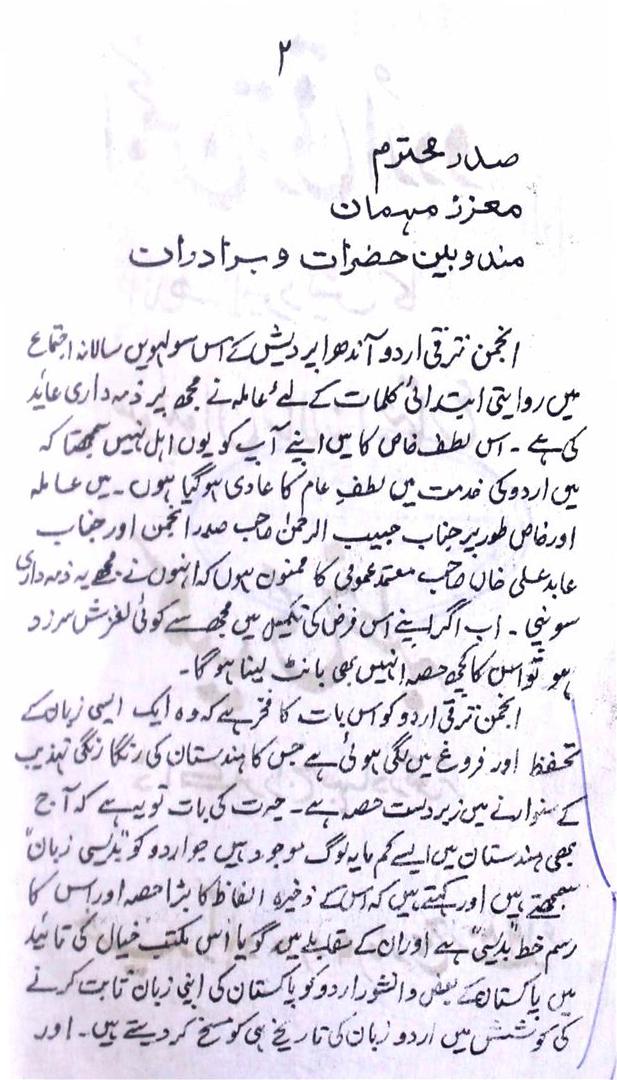 ۲
صدر محترم
معزز مہمان
مندوبین حضرات و برادران
انجمن ترقی اردو آندھرا پردیش کے اس سولہویں سالانہ اجتماع
میں روایتی ابتدائی کلمات کے لیے عاملہ نے مجھ پر ذمہ داری عاید
کی ہے ۔ اس لطف خاص کا میں اپنے آپ کو یوں اہل نہیں سمجھتا کہ
میں اردو کی خدمت میں لطفِ عام کا عادی ہو گیا ہوں ۔ میں عاملہ
اور خاص طور پر جناب حبیب الرحمٰن صاحب صدر انجمن اور جناب
عابد علی خاں صاحب معتمد عمومی کا ممنون ہوں کہ انہوں نے مجھے یہ ذمہ داری
سونپی ۔ اب اگر اپنے اس فرض کی تکمیل میں مجھ سے کوئی لغزش سرزد
ہو تو اس کا کچھ حصہ انہیں بھی بانٹ لینا ہو گا ۔
انجمن ترقی اردو کو اس بات کا فخر ہے کہ وہ ایک ایسی زبان کے
تحفظ اور فروغ میں لگی ہوئی ہے جس کا ہندستان کی رنگا رنگی تہذیب
کے سنوارنے میں زبردست حصہ ہے ۔ حیرت کی بات تو یہ ہے کہ آج
بھی ہندستان میں ایسے کم مایہ لوگ موجود ہیں جو اردو کو "بدیسی زبان"
سمجھتے ہیں اور کہتے ہیں کہ اس کے ذخیرہ الفاظ کا بڑا حصہ اور اس کا
رسم خط "بدیسی" ہے اور ان کے مقابلے میں گویا اس مکتب خیال کی تائید
میں پاکستان کے بعض دانشور اردو کو پاکستان کی اپنی زبان ثابت کرنے
کی کوشش میں اردو زبان کی تاریخ ہی کو مسخ کر دیتے ہیں ۔ اور